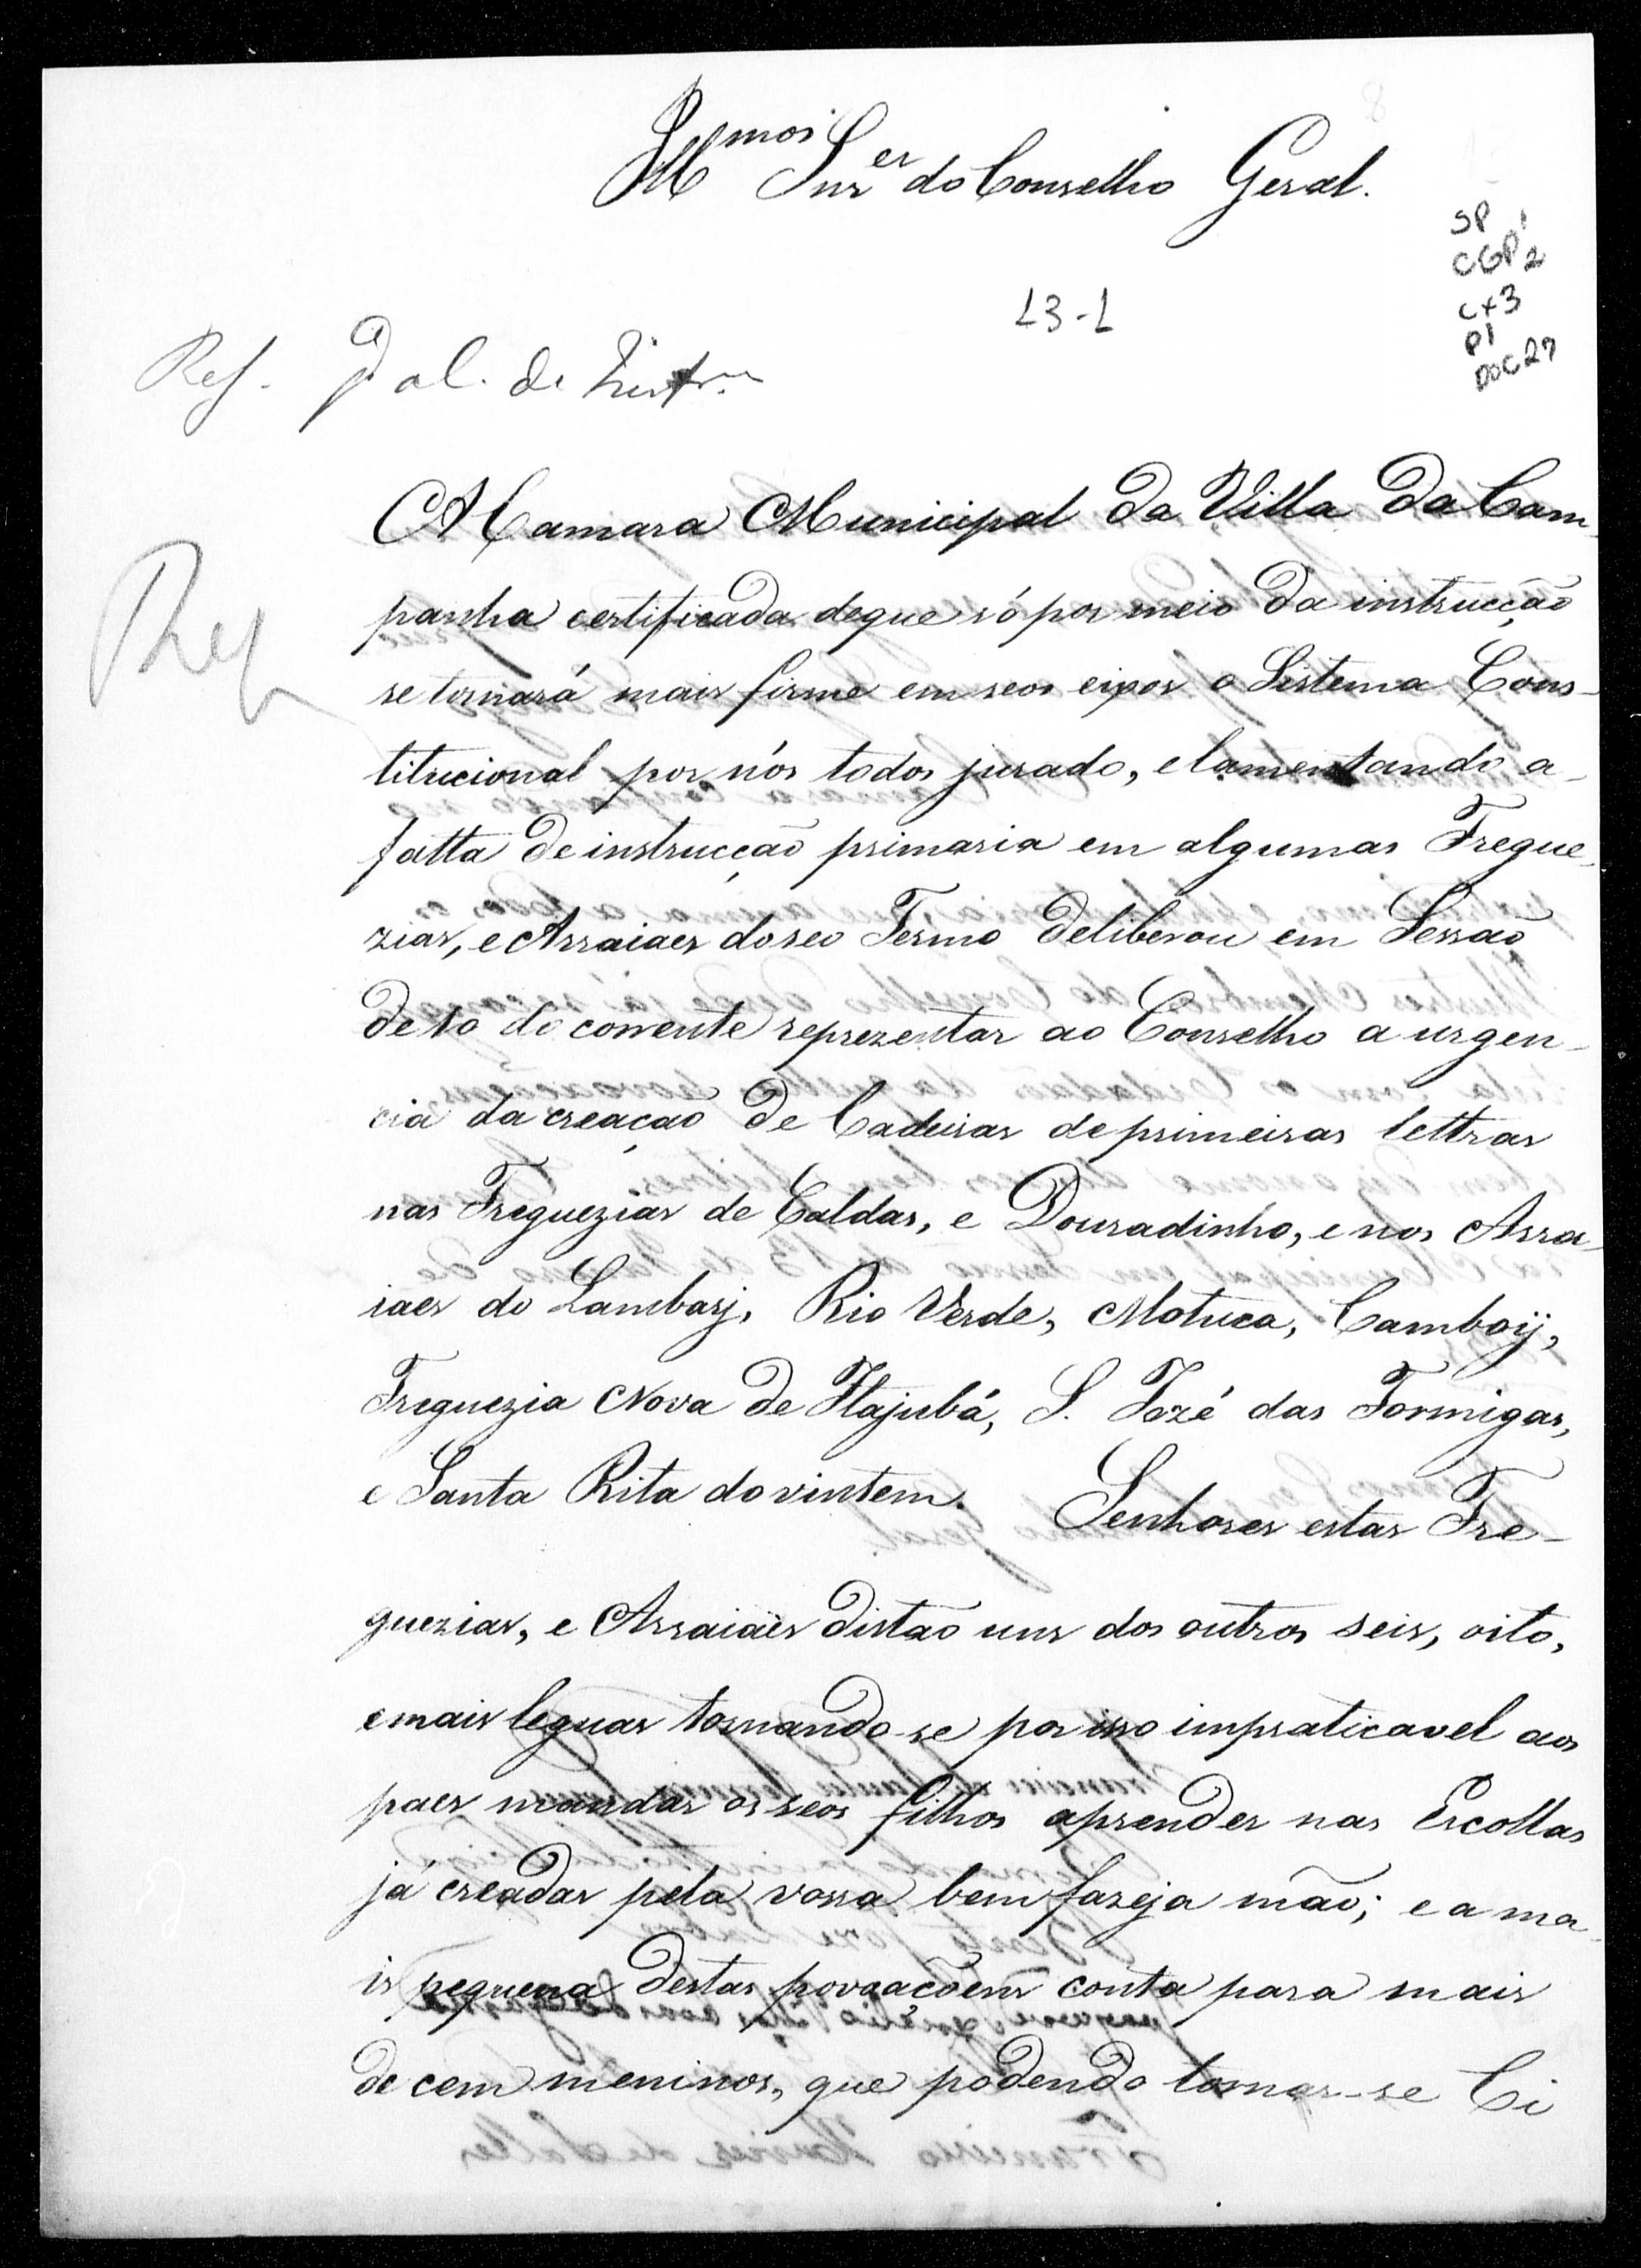 Ill.mos Snr.es do Conselho Geral.
SP 1
CGP 2
CX3
P1
DOC 27
13-1
Ref. al. de Instr.
Ref
A Camara Municipal da Villa da Cam-
panha certificada deque só por meio da instrucção
se tornará mais firme em seos eixos o Sistema Cons-
titucional por nós todos jurado, e lamentando a-
falta de instrucção primaria em algumas Fregue-
zias, e Arraiaes do seo Termo deliberou em Sessão
de 10 do corrente reprezentar ao Conselho a urgen-
cia da creação de Cadeiras de primeiras lettras
nas Freguezias de Caldas, e Douradinho, e nos Arra-
iaes do Lambarj, Rio Verde, Motuca, Camboÿ,
Freguezia Nova de Itajubá, S. Jozé das Formigas,
e Santa Rita do vintem. Senhores estas Fre-
guezias, e Arraiaes distão uns dos outros seis, oito,
e mais leguas tornando-se por isso impraticavel aos
paes mandar os seos filhos aprender nas Escollas
já creadas pela vossa bemfazeja mão; e a ma-
is pequena destas povoaçoens conta para mais
de cem meninos, que podendo tornar-se Ci